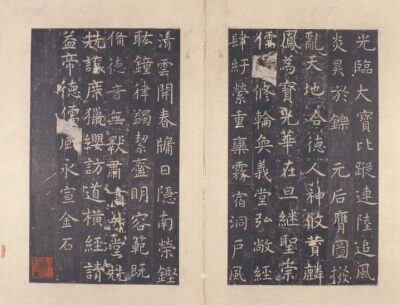 光臨大寶比蹤連陸追風
炎昊於鑠元后膺圖撥
亂天地合德人神攸贊麟
鳳為寶光華在旦繼聖崇
儒修輪奐義堂弘敞經
肆紆縈重欒霧宿洞戶風
清雲開春牖日隱南榮鏗
耾鐘律蠲絜齍明容範既
俻德音無斁肅堂兢
兢讓席獵纓訪道橫經請
益帝德儒風永宣金石